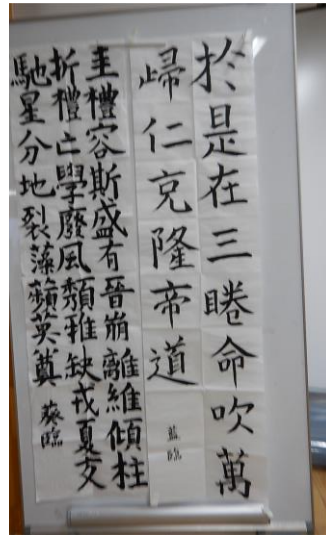 於是在三睠命吹萬
歸仁克隆帝道
藍臨
圭禮容斯盛有晉崩離維傾柱
折禮亡學廢風頽雅缺戎夏交
馳星分地裂藻蘋莫奠
葵臨